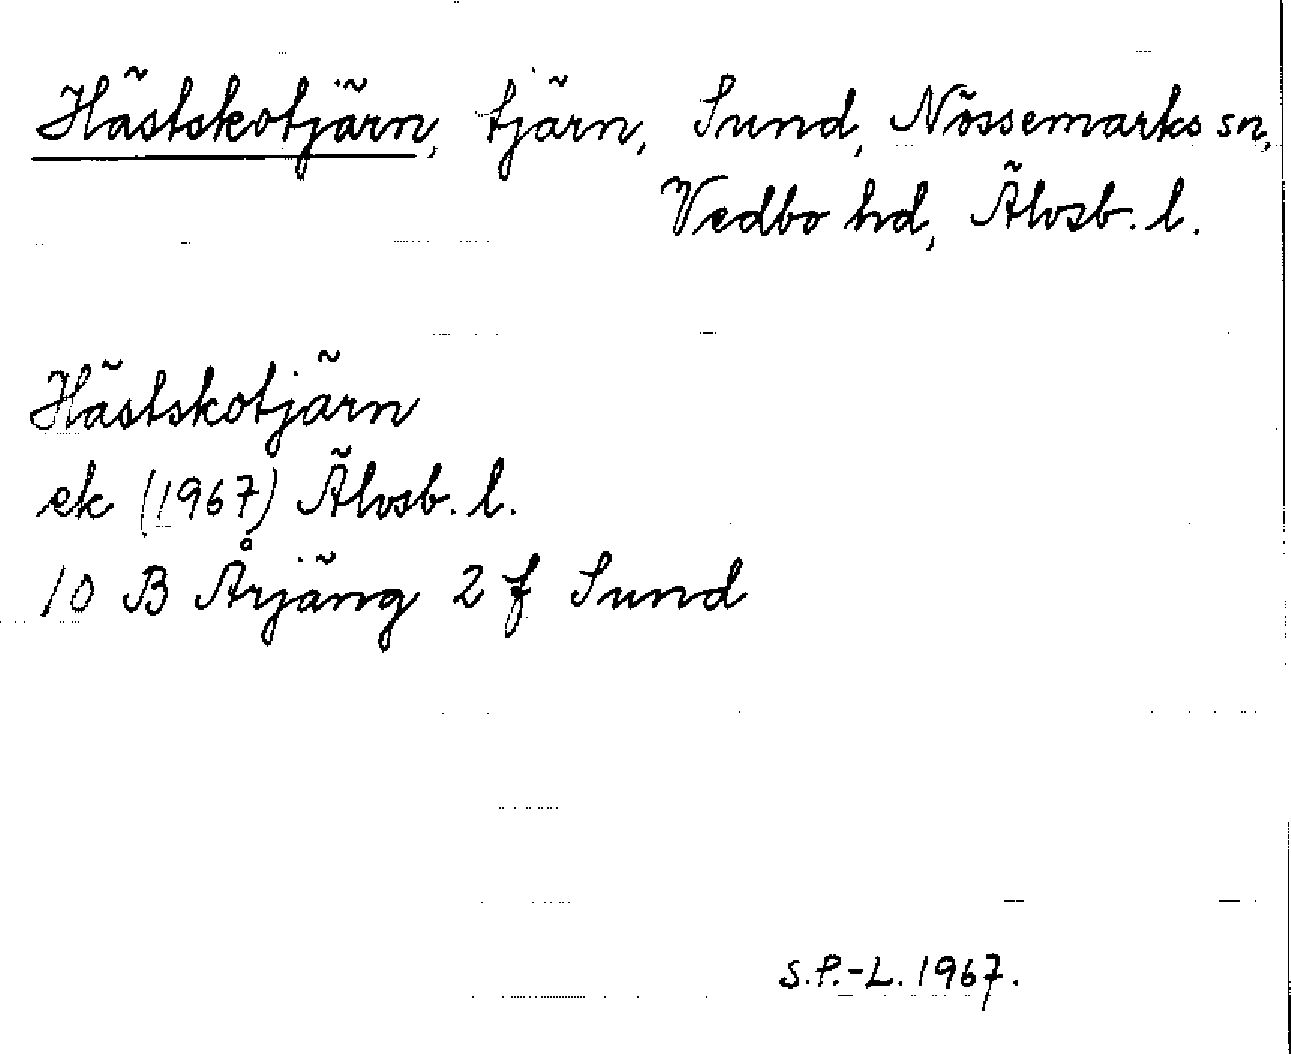 Hästskotjärn, tjärn, Sund, Nössemarks sn,
Vedbo hd, Älvsb. l.
Hästskotjärn
ek (1967) Älvsb. l.
10 B Årjäng 2 f Sund
S.P.-L. 1967.